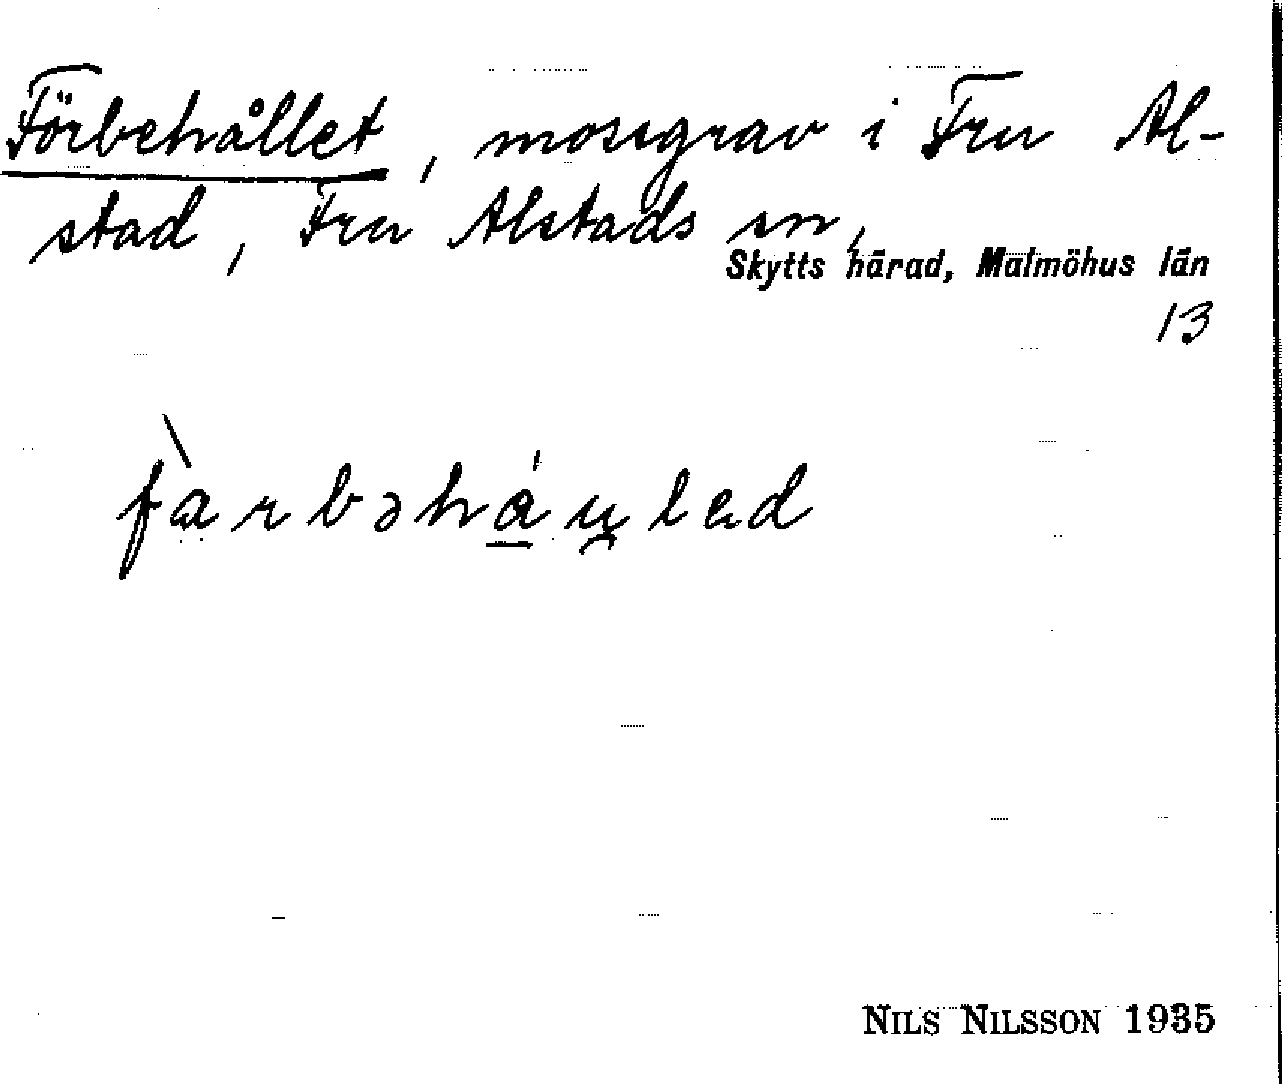 Förbehållet, mosegrav i Fru Al-
stad, Fru Alstads sn,
Skytts härad, Malmöhus län
13
fàrbəháu̯led
NILS NILSSON 1935